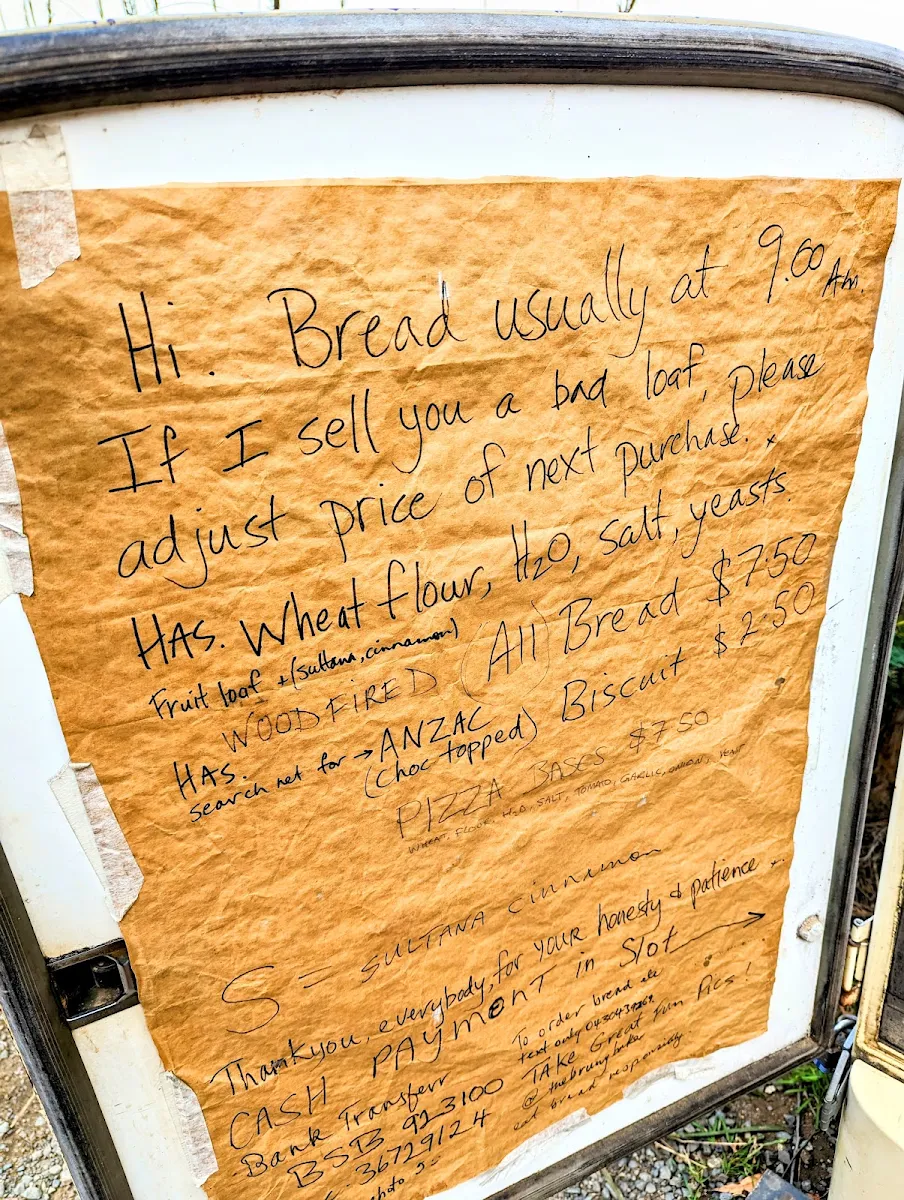 Hi. Bread usually at 9.00 Am.
If I sell you a bad loaf, please
adjust price of next purchase. x
HAS. Wheat flour, H2O, salt, yeasts.
Fruit loaf +(sultana, cinnamon)
WOODFIRED (All) Bread $7.50
HAS. ANZAC Biscuit $2.50
search net for → (choc topped)
PIZZA BASES $7.50
WHEAT, FLOUR, H2O, SALT, TOMATO, GARLIC, ONION, YEAST
S = SULTANA cinnamon
Thankyou, everybody, for YOUR honesty & patience x.
CASH PAYMENT in Slot →
Bank Transferr
BSB 923100
36729124
photo
To order bread
text only
TAKE Great Fun Pics!
@thebrunybaker
eat bread responsibly.